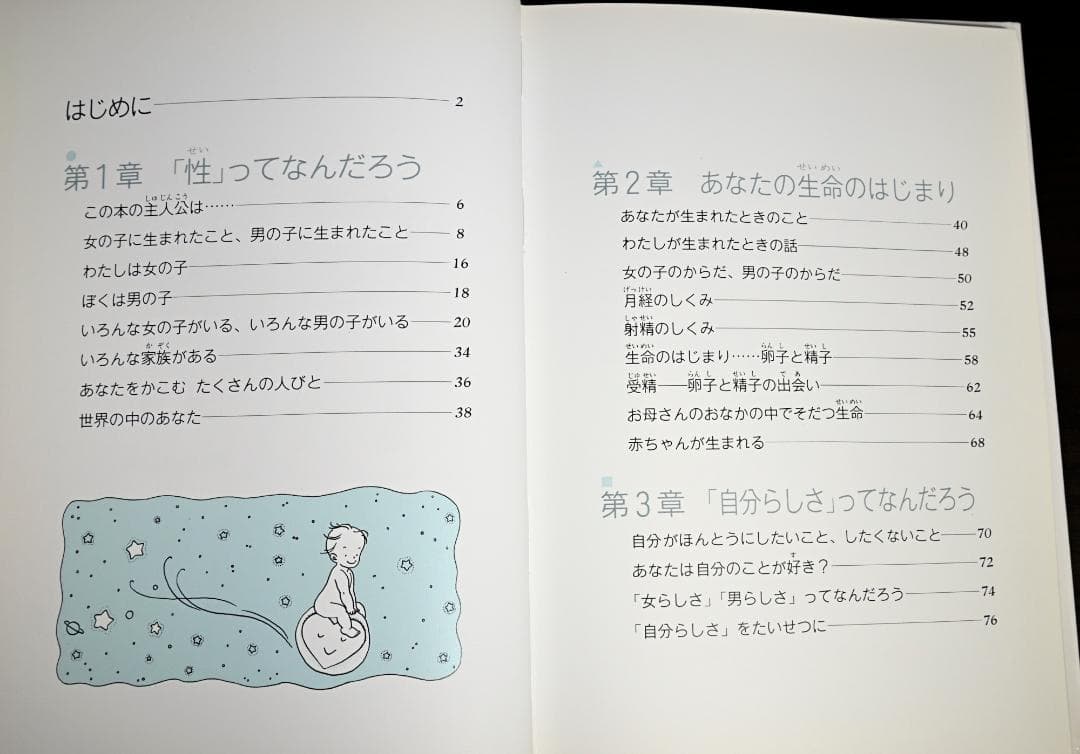 はじめに 2
第1章 「性」ってなんだろう
この本の主人公は…… 6
女の子に生まれたこと、男の子に生まれたこと 8
わたしは女の子 16
ぼくは男の子 18
いろんな女の子がいる、いろんな男の子がいる 20
いろんな家族がある 34
あなたをかこむ たくさんの人びと 36
世界の中のあなた 38
第2章 あなたの生命のはじまり
あなたが生まれたときのこと 40
わたしが生まれたときの話 48
女の子のからだ、男の子のからだ 50
月経のしくみ 52
射精のしくみ 55
生命のはじまり……卵子と精子 58
受精――卵子と精子の出会い 62
お母さんのおなかの中でそだつ生命 64
赤ちゃんが生まれる 68
第3章 「自分らしさ」ってなんだろう
自分がほんとうにしたいこと、したくないこと 70
あなたは自分のことが好き？ 72
「女らしさ」「男らしさ」ってなんだろう 74
「自分らしさ」をたいせつに 76